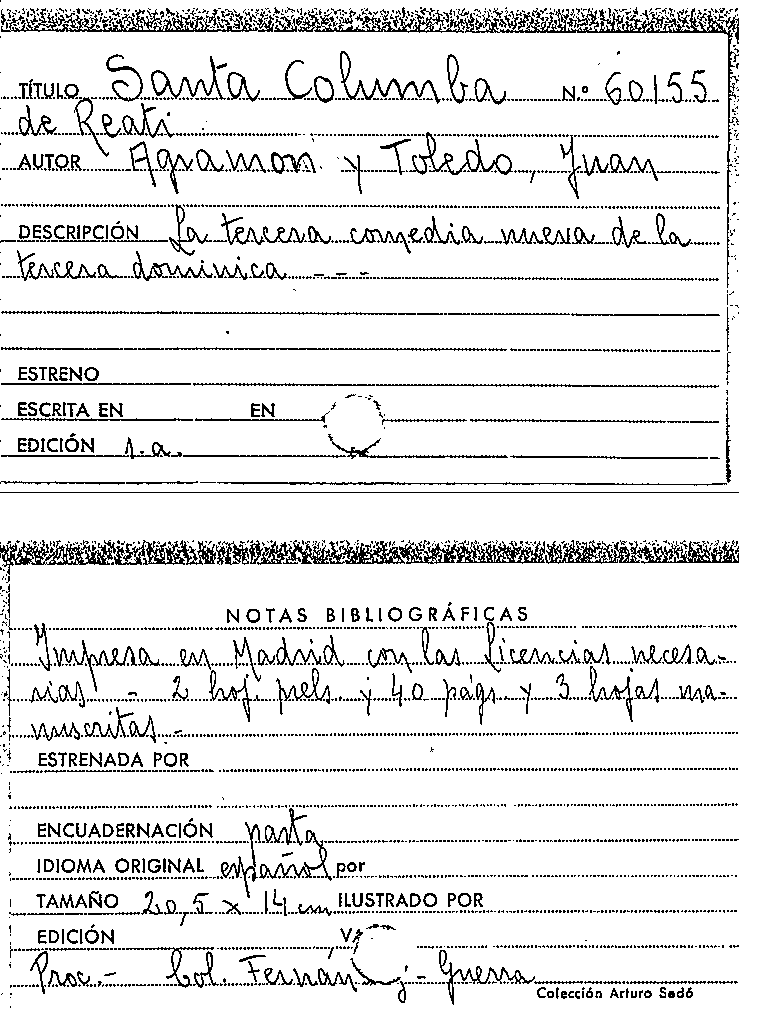 TÍTULO Santa Columba N.º 60155
de Reati
AUTOR Agramon y Toledo, Juan
DESCRIPCIÓN La tercera comedia nueva de la
tercera dominica - - -
ESTRENO
ESCRITA EN EN
EDICIÓN s.a.
NOTAS BIBLIOGRÁFICAS
Impresa en Madrid con las Licencias necesa-
rias - 2 hoj. prels. y 40 págs. y 3 hojas ma-
nuscritas -
ESTRENADA POR
ENCUADERNACIÓN pasta
IDIOMA ORIGINAL español por
TAMAÑO 20,5 x 14 cm ILUSTRADO POR
EDICIÓN
Proc.- Col. Fernán - Guerra
Colección Arturo Sedó